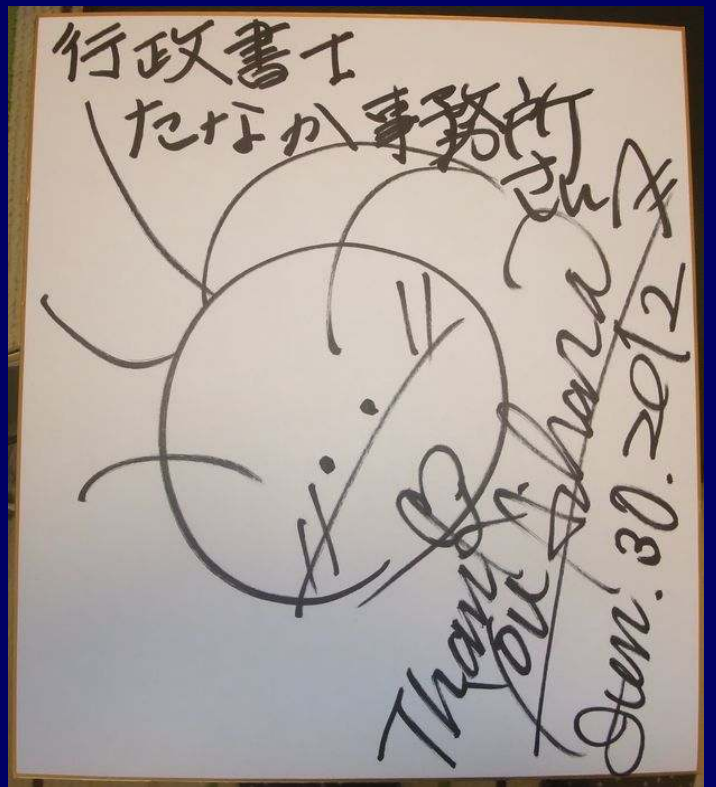 行政書士
たなか事務所
さんへ
Thank
You
Jun. 30. 2012